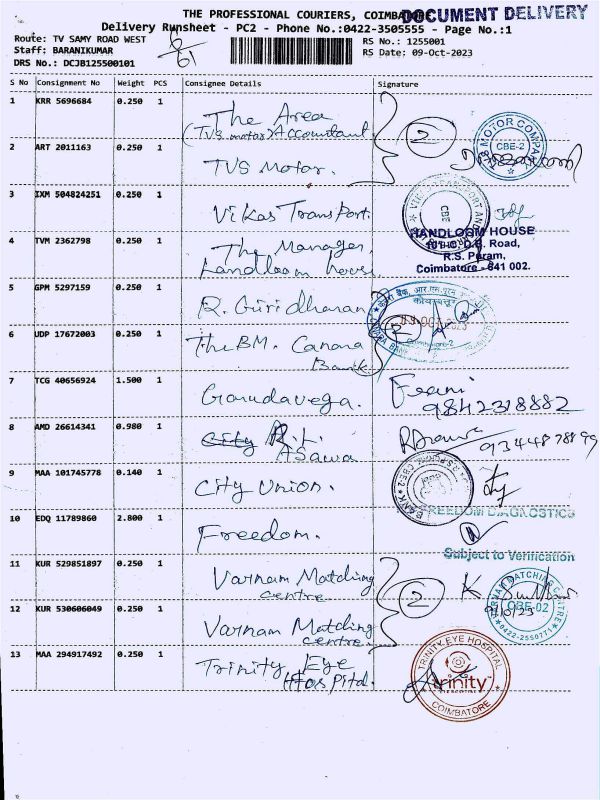 THE PROFESSIONAL COURIERS, COIMBATORE
DOCUMENT DELIVERY
Delivery Runsheet - PC2 - Phone No.:0422-3505555 - Page No.:1
Route: TV SAMY ROAD WEST
RS No.: 1255001
Staff: BARANIKUMAR
RS Date: 09-Oct-2023
DRS No.: DCJB125500101
6/61
S No Consignment No Weight PCS Consignee Details Signature
1 KRR 5696684 0.250 1 The Area
(TVS motor) Accountant
2 ART 2011163 0.250 1 TVS Motor.
2
TVS MOTOR COMPANY
CBE-2
3 IXM 504824251 0.250 1 Vikas Transport.
CBE
4 TVM 2362798 0.250 1 The Manager
handloom house
HANDLOOM HOUSE
D.B. Road,
R.S. Puram,
Coimbatore - 641 002.
5 GPM 5297159 0.250 1 R. Giridharan
6 UDP 17672003 0.250 1 The BM. Canara
Bank
2
7 TCG 40656924 1.500 1 Garudavega.
9842318882
8 AMD 26614341 0.980 1 City R.L.
Asawa
9 MAA 101745778 0.140 1 City Union.
BANK
10 EDQ 11789860 2.800 1 Freedom.
FREEDOM DIAGNOSTICS
Subject to Verification
11 KUR 529851897 0.250 1 Varnam Matching
centre
12 KUR 530606049 0.250 1 Varnam Matching
centre.
2
VARNAM MATCHING CENTRE
CBE-02
0422-2550771
13 MAA 294917492 0.250 1 Trinity Eye
Hospital.
TRINITY EYE HOSPITAL
trinity
COIMBATORE